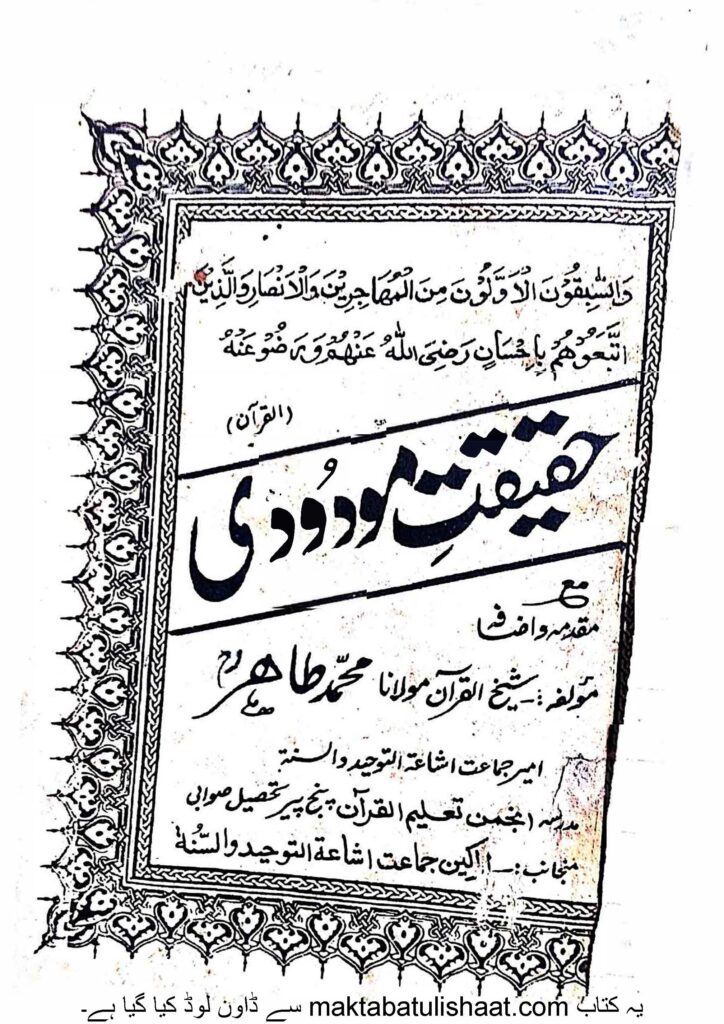 وَالسّٰبِقُوْنَ الْاَوَّلُوْنَ مِنَ الْمُهَاجِرِيْنَ وَالْاَنْصَارِ وَالَّذِيْنَ
اتَّبَعُوْهُمْ بِاِحْسَانٍ رَضِىَ اللّٰهُ عَنْهُمْ وَرَضُوْعَنْهُ
(القرآن)
حقیقتِ مودُودی
مع
مقدمہ واضافہ
مؤلفہ :۔ شیخ القرآن مولانا محمّد طاہرؒ
امیر جماعت اشاعۃ التوحید والسنۃ
مدرسہ انجمن تعلیم القرآن پنج پیر تحصیل صوابی
منجانب :۔ اراکین جماعت اشاعۃ التوحید والسُّنۃ
یہ کتاب maktabatulishaat.com سے ڈاون لوڈ کیا گیا ہے۔